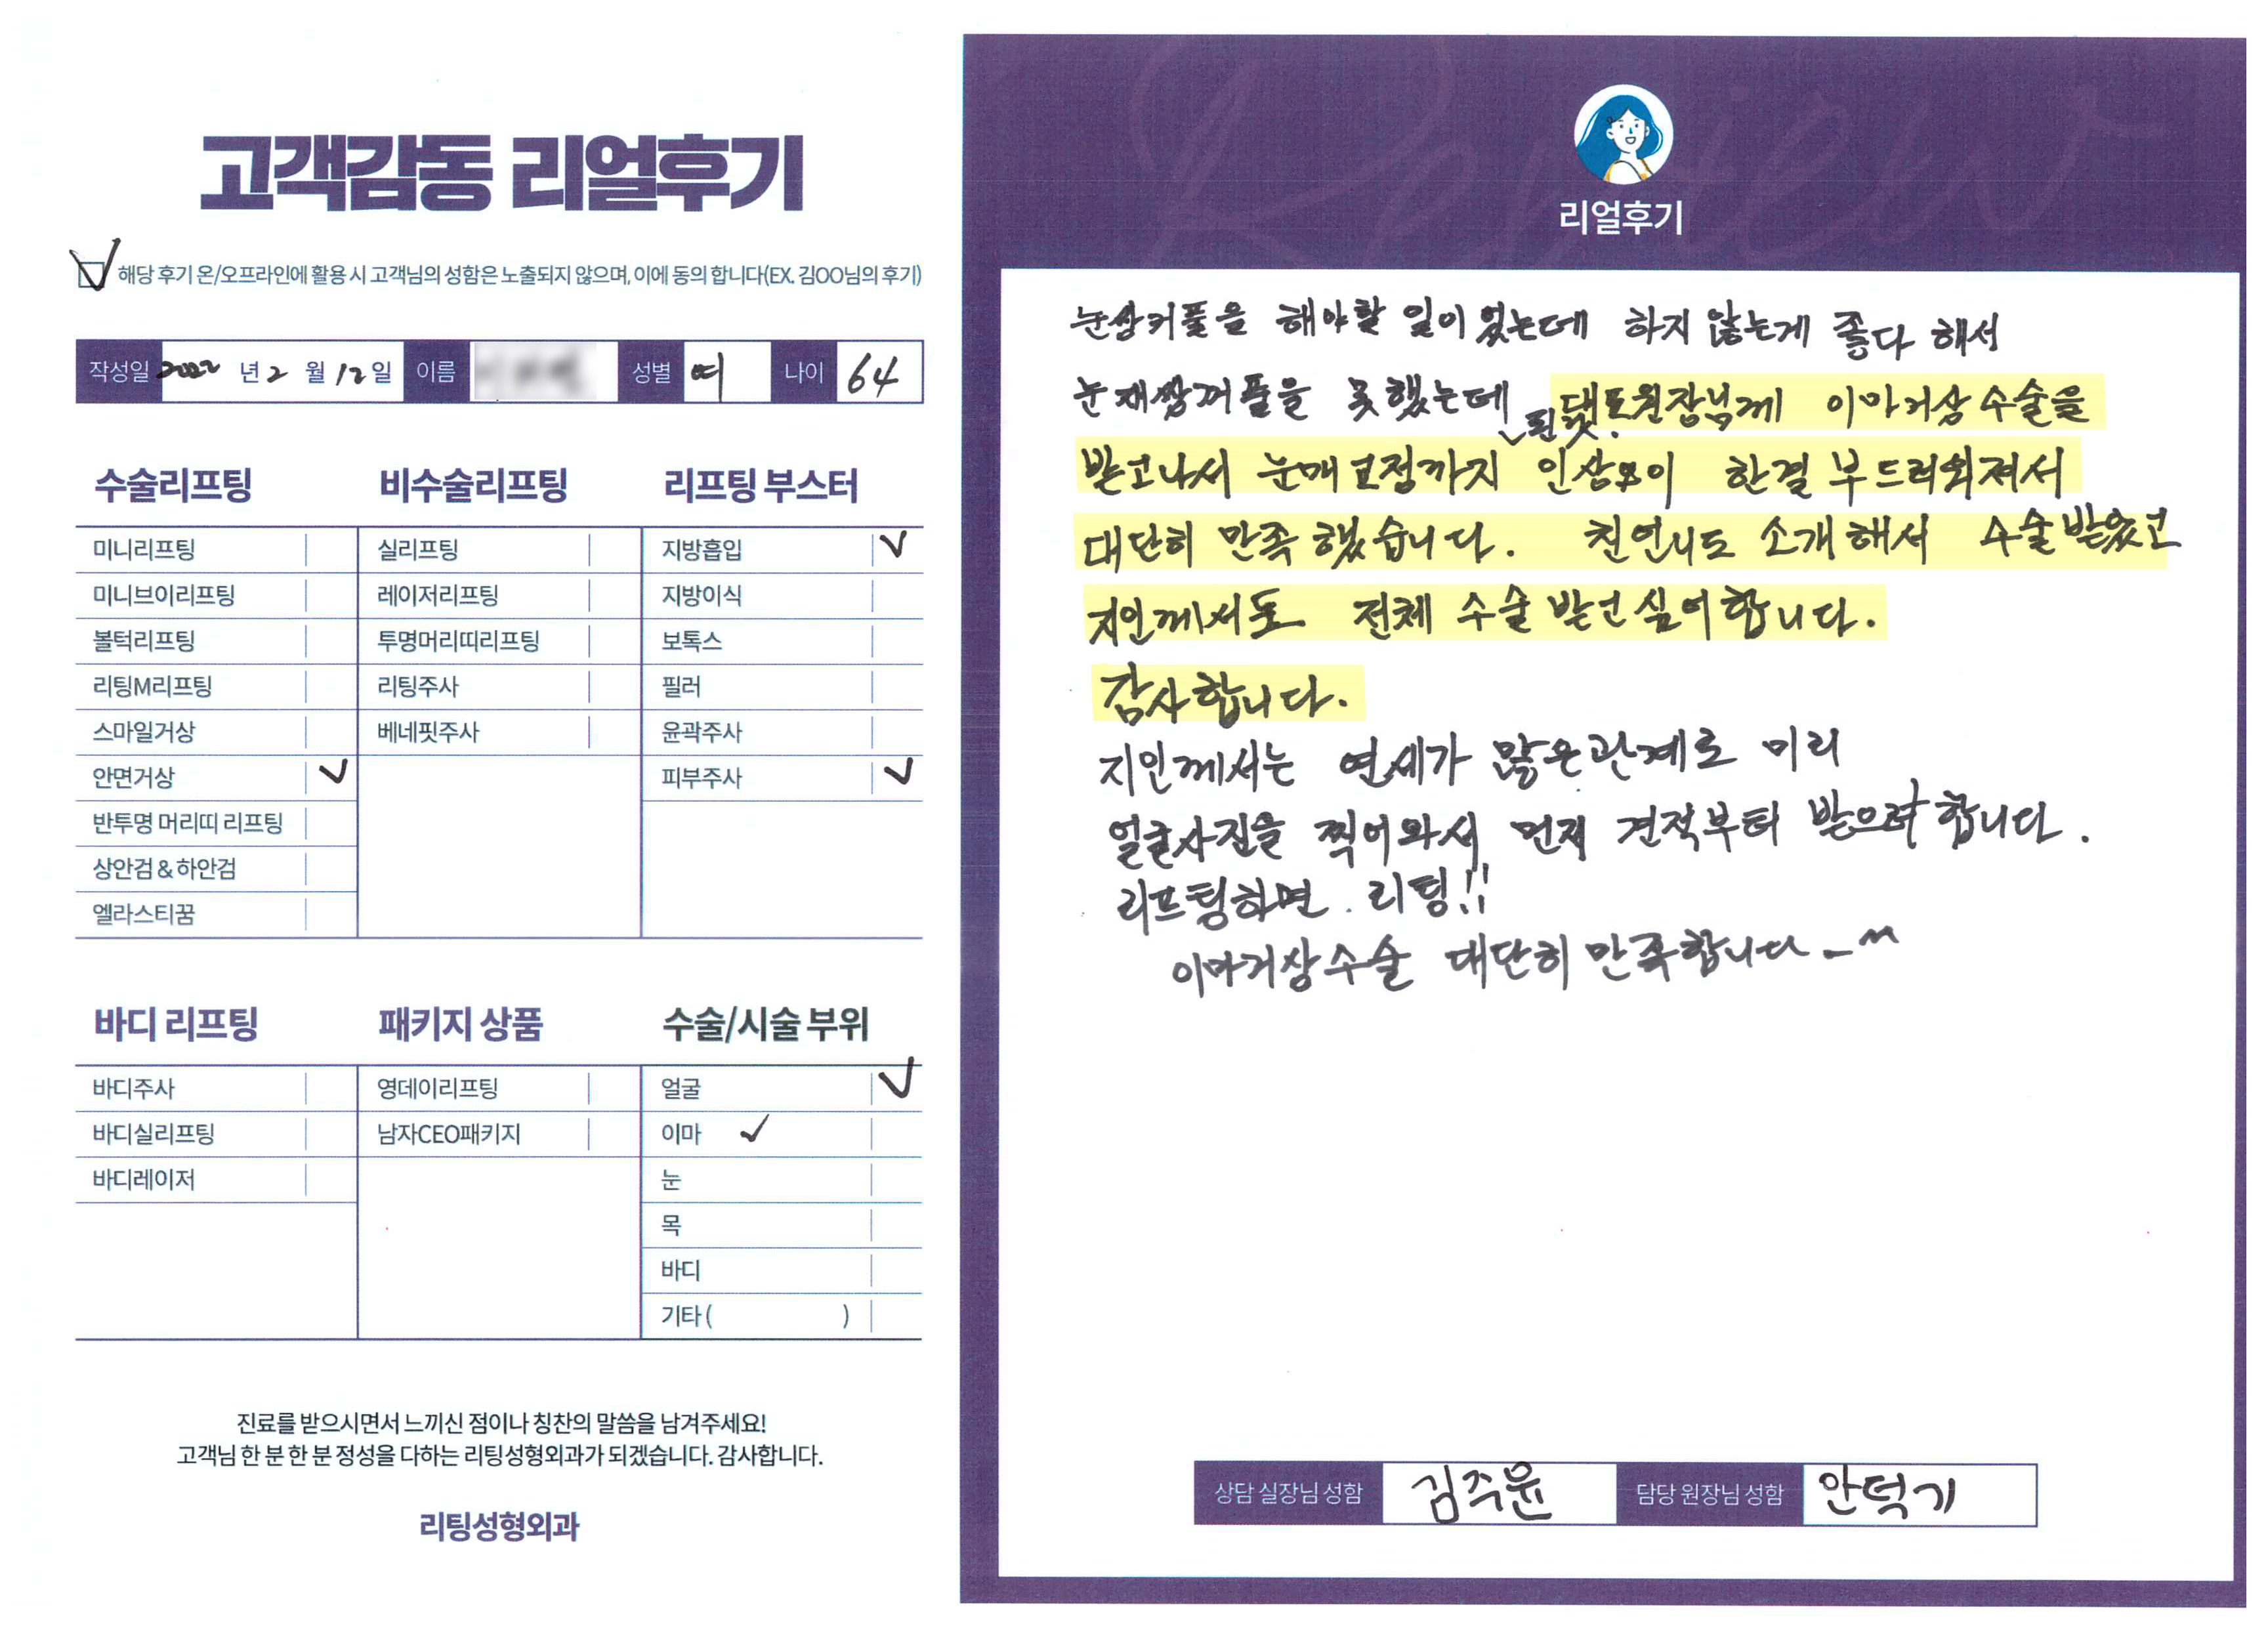 고객감동 리얼후기
해당 후기 온/오프라인에 활용 시 고객님의 성함은 노출되지 않으며, 이에 동의 합니다(EX. 김OO님의 후기)
작성일 2022 년 2 월 12 일 이름 성별 여 나이 64
수술리프팅
미니리프팅
미니브이리프팅
볼턱리프팅
리팅M리프팅
스마일거상
안면거상
반투명 머리띠 리프팅
상안검 & 하안검
엘라스티꿈
비수술리프팅
실리프팅
레이저리프팅
투명머리띠리프팅
리팅주사
베네핏주사
리프팅 부스터
지방흡입
지방이식
보톡스
필러
윤곽주사
피부주사
바디 리프팅
바디주사
바디실리프팅
바디레이저
패키지 상품
영데이리프팅
남자CEO패키지
수술/시술 부위
얼굴
이마
눈
목
바디
기타 ( )
진료를 받으시면서 느끼신 점이나 칭찬의 말씀을 남겨주세요!
고객님 한 분 한 분 정성을 다하는 리팅성형외과가 되겠습니다. 감사합니다.
리팅성형외과
Review
리얼후기
눈쌍커풀을 해야할 일이 있는데 하지 않는게 좋다 해서
눈재쌍꺼풀을 못했는데 원장님께 이마거상 수술을
받고나서 눈매교정까지 인상이 한결 부드러워져서
대단히 만족했습니다. 친언니도 소개해서 수술받았고
지인께서도 전체 수술 받고싶어합니다.
감사합니다.
지인께서는 연세가 많은관계로 미리
얼굴사진을 찍어와서 먼저 견적부터 받으려합니다.
리프팅하면. 리팅!!
이마거상수술 대단히 만족합니다-^^
상담 실장님 성함 김주윤 담당 원장님 성함 안덕기